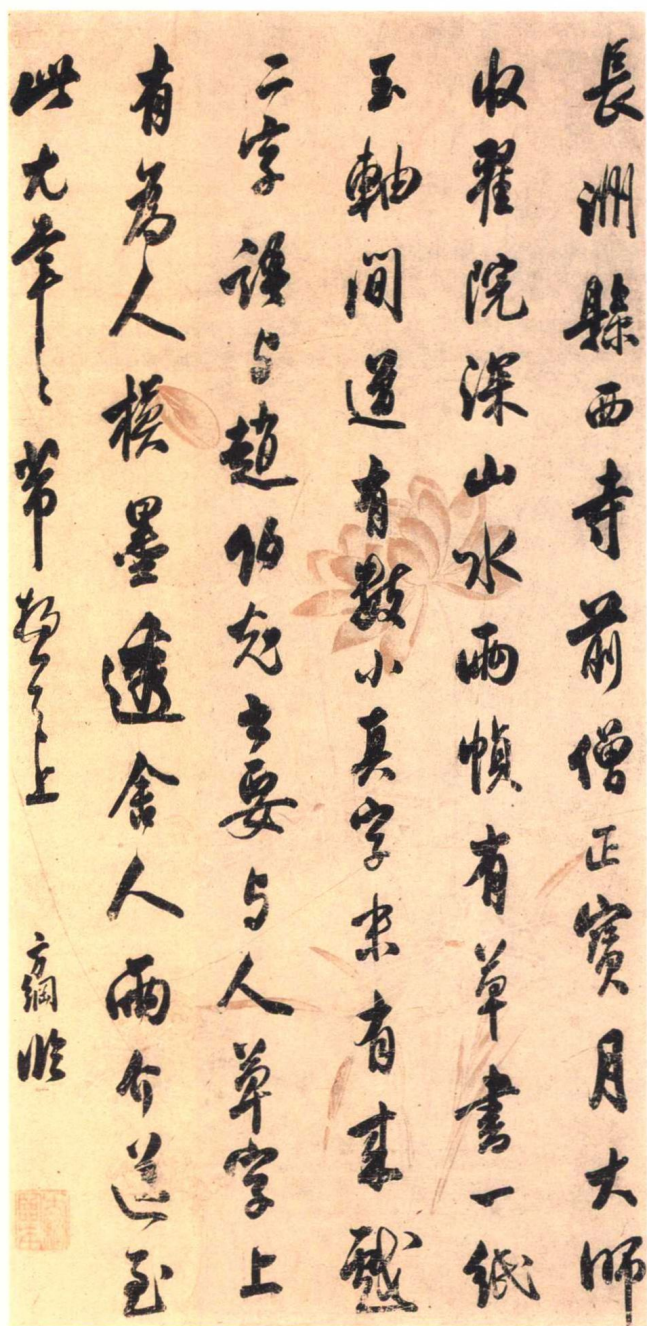 長洲縣西寺前僧正寶月大師
收翟院深山水兩幀有草書一紙
玉軸間道有數小真字末有來戲
二字語与趙伯充云要与人草字上
有為人模墨透舍人兩介送至
此尤幸〻芾頓首上
方綱臨